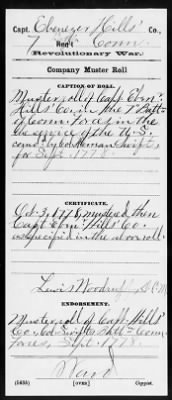 Capt. Ebenezer Hills' Co.,
7 Reg't Conn.
Revolutionary War.
Company Muster Roll
CAPTION OF ROLL.
Muster roll of Capt Ebenr.
Hills' Co. in the 7 Batt.
Conn. Forces in the
service of the U.S.
comd. by Col. Heman Swift,
for Sept. 1778.
CERTIFICATE.
Oct. 3, 1778, mustered then
Capt Ebnr. Hills' Co.
as specified in the above roll.
Lewis Woodruff, D.C.M.
ENDORSEMENT.
Muster roll of Capt. Hills'
Co., Col. Swift's Batt. Conn.
Forces, Sept. 1778.
(563b) [OVER] Copyist.